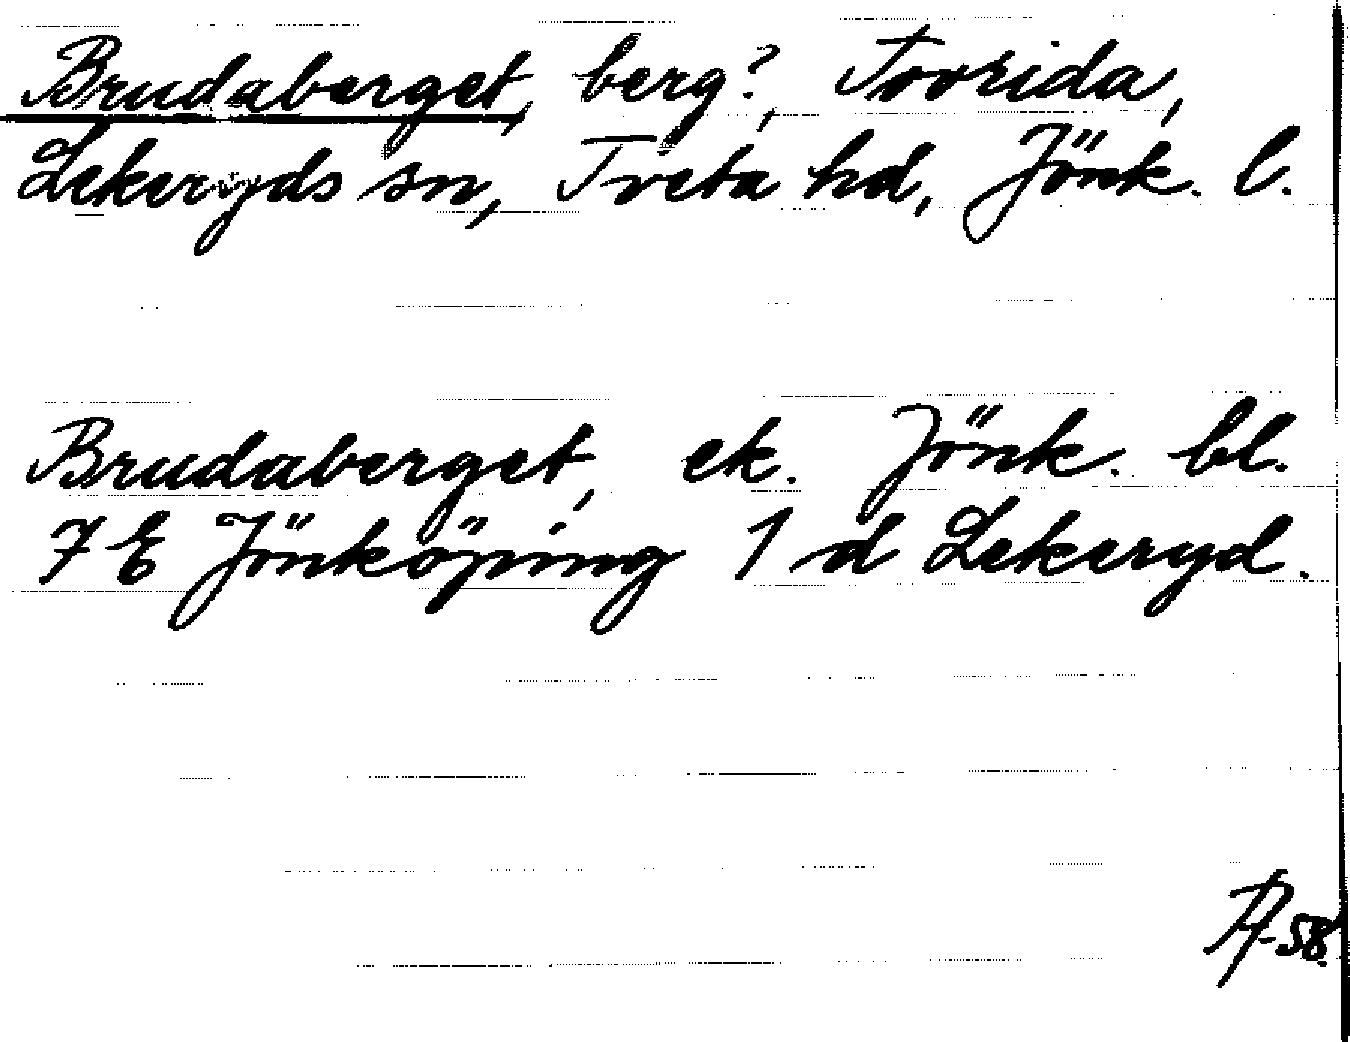 Brudaberget, berg?, Tovrida,
Lekeryds sn, Tveta hd, Jönk. l.
Brudaberget, ek. Jönk. bl.
7 E Jönköping 1 d Lekeryd.